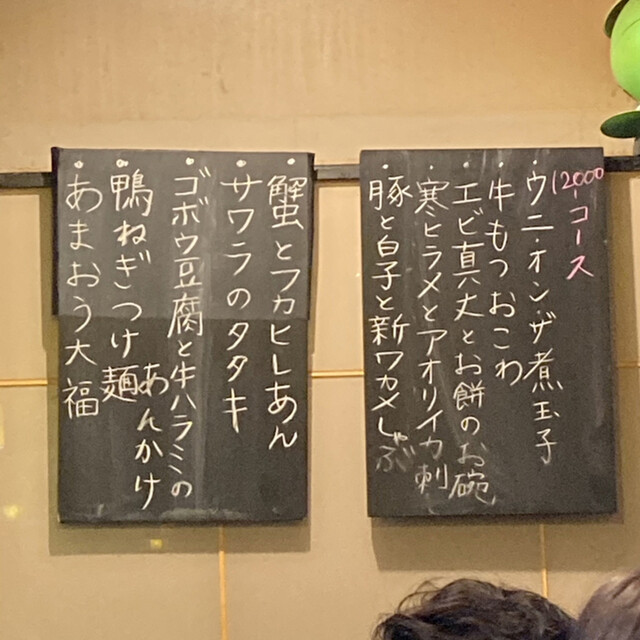 12000コース
・ウニ・オン・ザ煮玉子
・牛もつおこわ
・エビ真丈とお餅のお碗
・寒ヒラメとアオリイカ刺
・豚と白子と新ワカメしゃぶ
・蟹とフカヒレあん
・サワラのタタキ
・ゴボウ豆腐と牛ハラミの
あんかけ
・鴨ねぎつけ麺
・あまおう大福